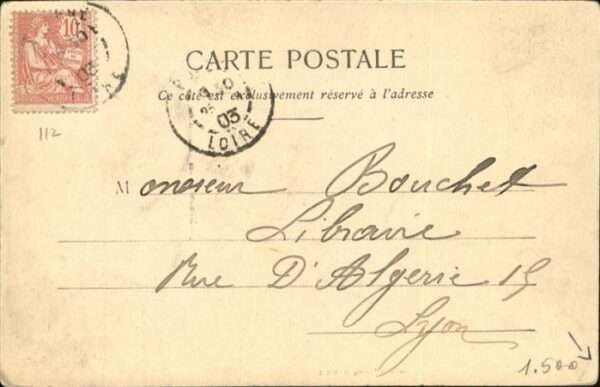 10
CARTE POSTALE
Ce côté est exclusivement réservé à l'adresse
03
LOIRE
112
Monsieur Bouchet
Libraire
Rue D'Algerie 15
Lyon
1.500